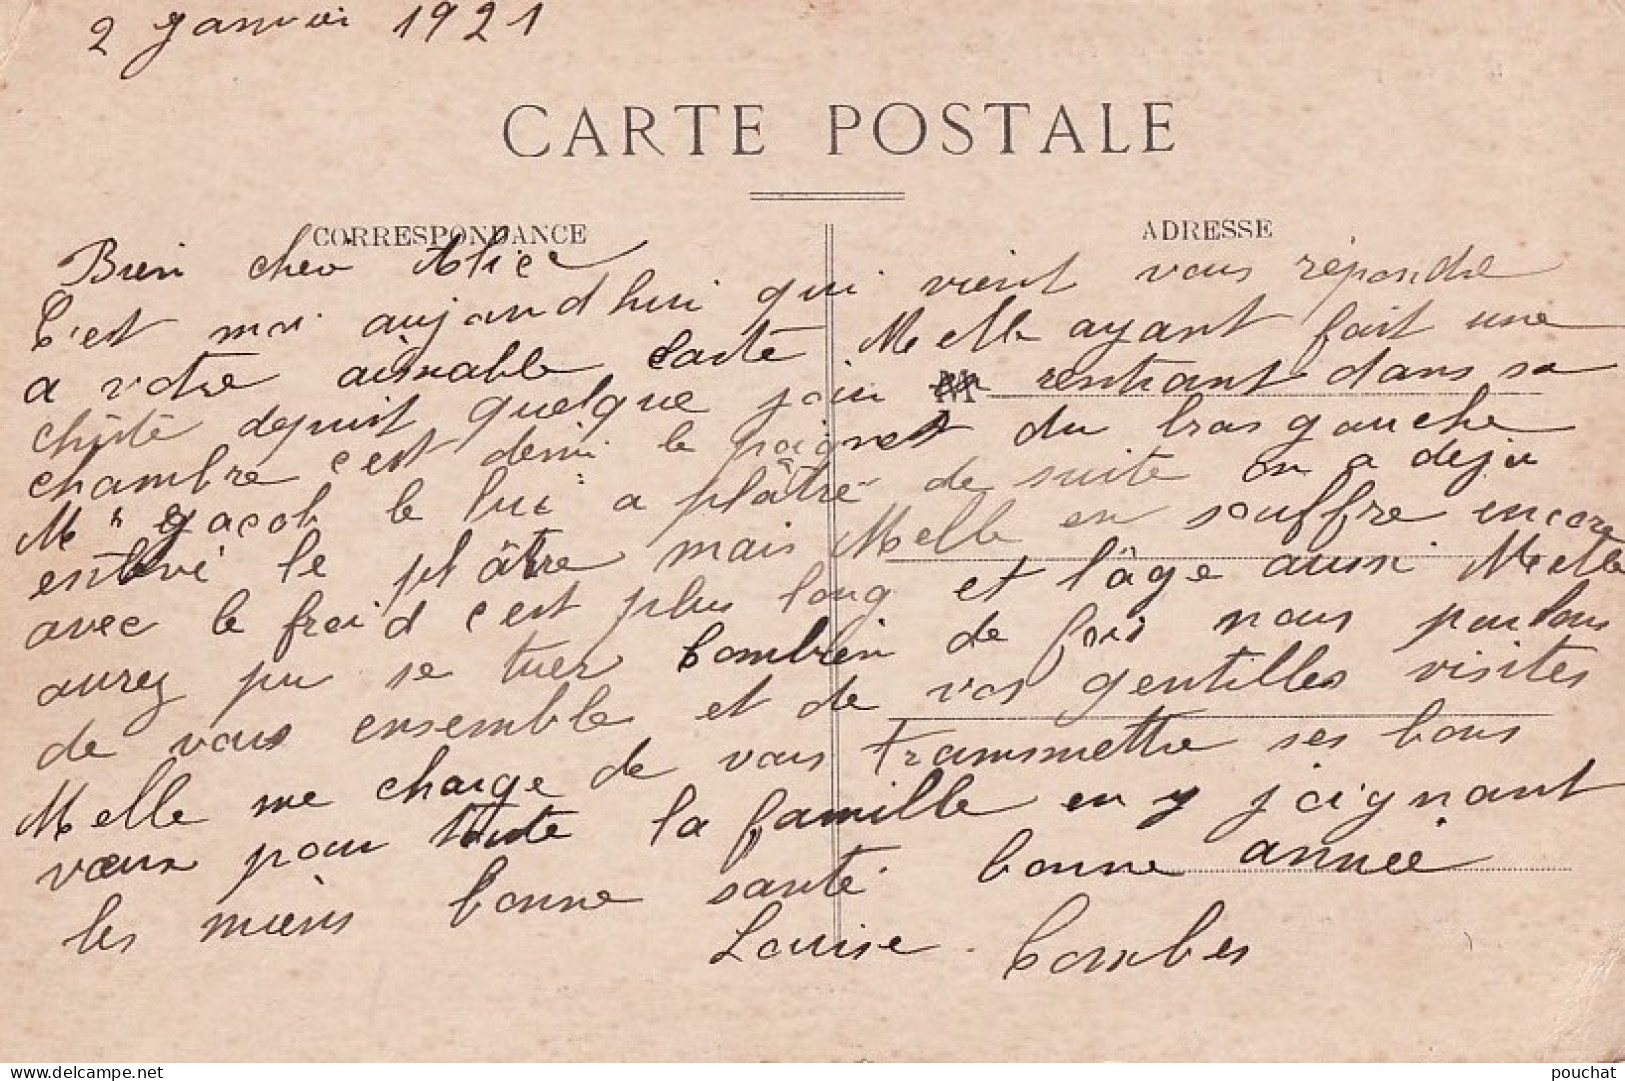 2 Janvier 1921
CARTE POSTALE
CORRESPONDANCE
ADRESSE
Bien cher Alice
C'est moi aujourd'hui qui vient vous répondre
a votre aimable carte Melle ayant fait une
chûte depuit quelque jour rentrant dans sa
chambre c'est demi le poignet du bras gauche
Mr Jacob le lui a plâtré de suite on a deja
enlevé le plâtre mais Melle en souffre encore
avec le froid c'est plus long et l'âge aussi Melle
aurez pu se tuer Combien de fois nous parlons
de vous ensemble et de vos gentilles visites
Melle me charge de vous transmettre ses bons
vœux pour toute la famille en y joignant
les miens bonne santé bonne année
Louise Combes
pouchat
www.delcampe.net